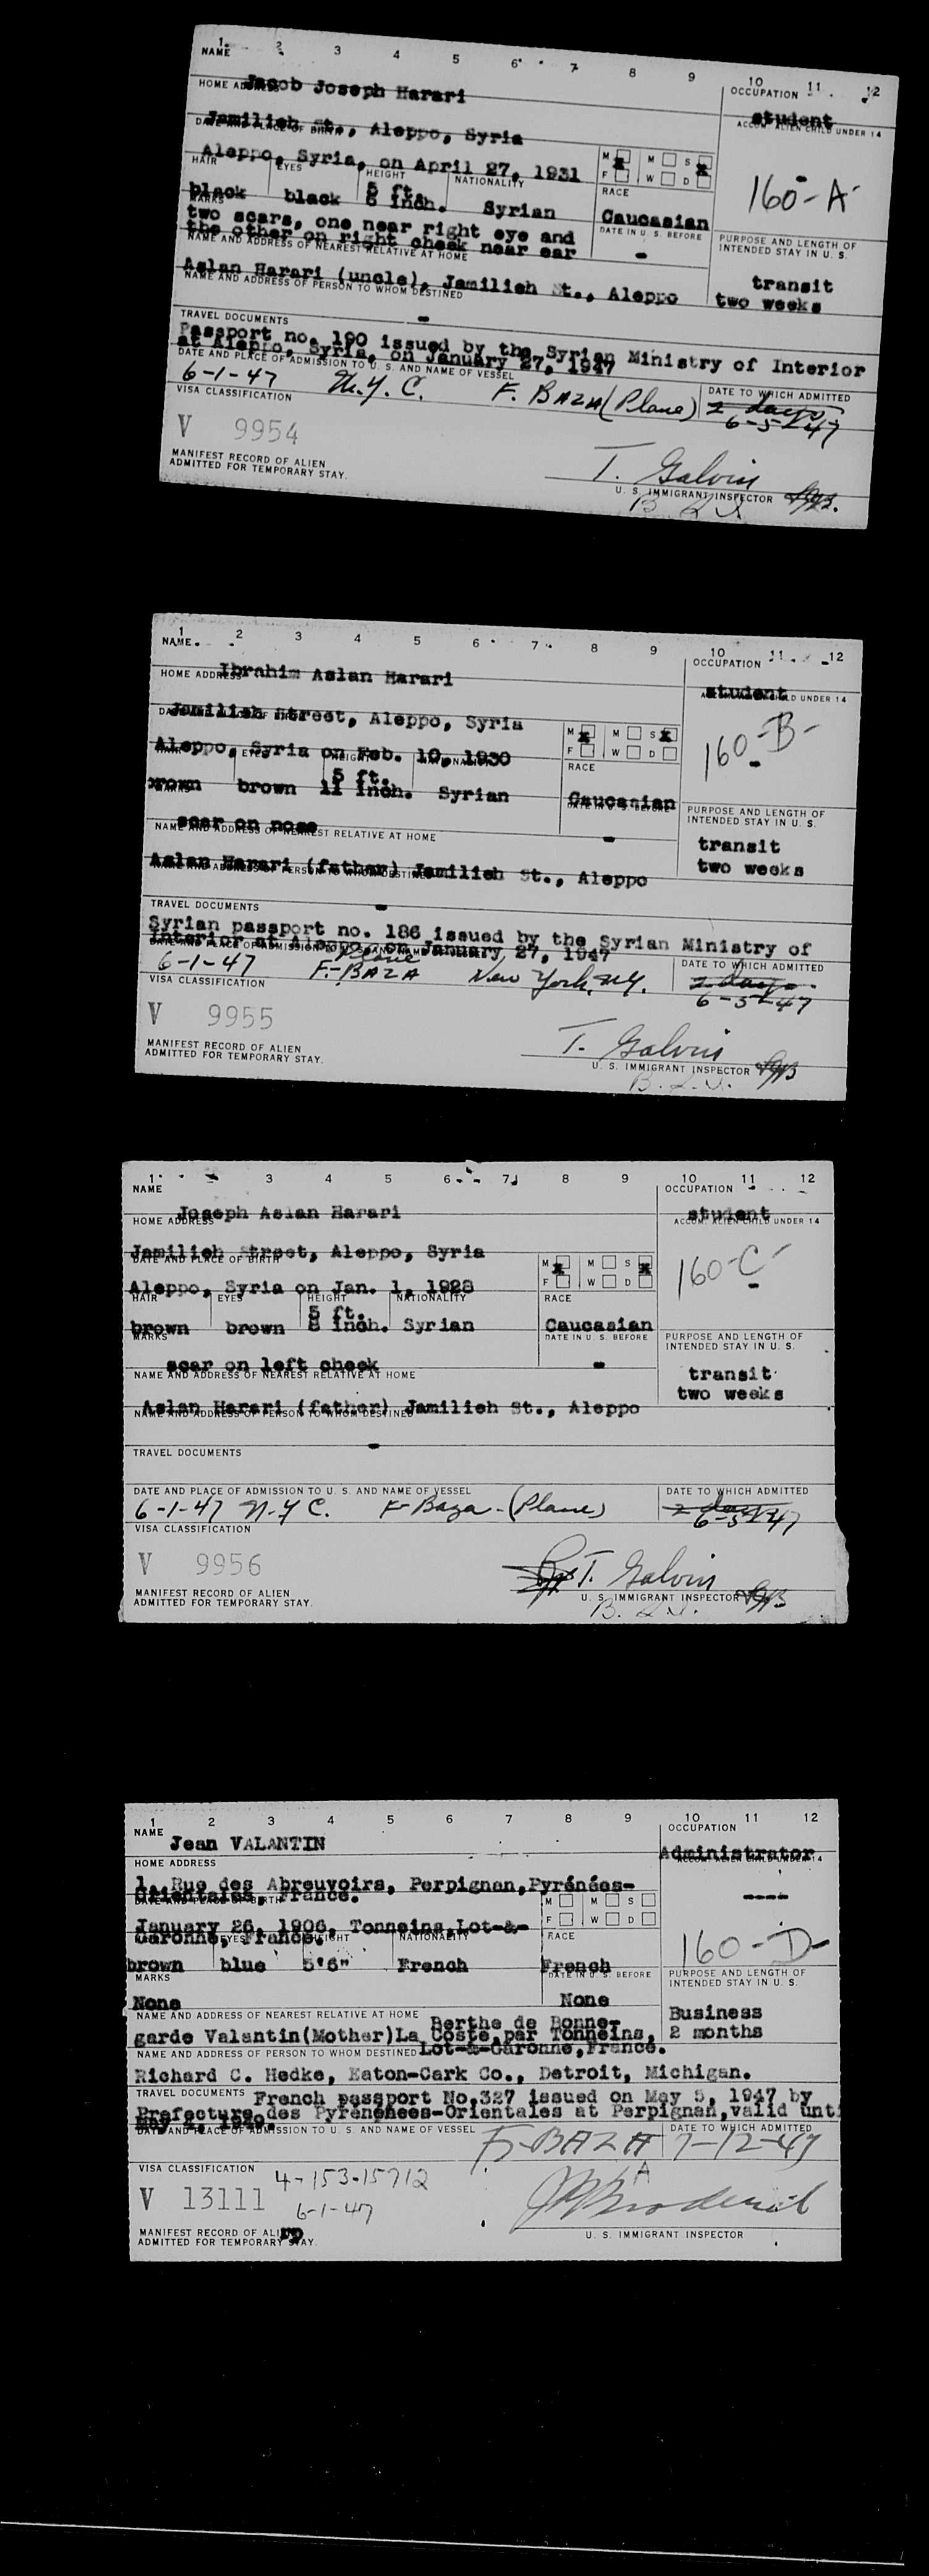 1 2 3 4 5 6 7 8 9 10 11 12
NAME OCCUPATION
Jacob Joseph Harari student
HOME ADDRESS ACCOM. ALIEN CHILD UNDER 14
Jamilieh St., Aleppo, Syria
DATE AND PLACE OF BIRTH
Aleppo, Syria, on April 27, 1931 M X M S X
F W D
160-A-
HAIR EYES HEIGHT NATIONALITY RACE
black black 5 ft. 6 inch. Syrian Caucasian
MARKS DATE IN U. S. BEFORE PURPOSE AND LENGTH OF
INTENDED STAY IN U. S.
two scars, one near right eye and
the other on right cheek near ear -
NAME AND ADDRESS OF NEAREST RELATIVE AT HOME transit
Aslan Harari (uncle), Jamilieh St., Aleppo two weeks
NAME AND ADDRESS OF PERSON TO WHOM DESTINED
-
TRAVEL DOCUMENTS
Passport no. 190 issued by the Syrian Ministry of Interior
at Aleppo, Syria, on January 27, 1947
DATE AND PLACE OF ADMISSION TO U. S. AND NAME OF VESSEL DATE TO WHICH ADMITTED
6-1-47 N.Y.C. F. BAZA (Plane) 2 days
6-5-47
VISA CLASSIFICATION
V 9954
T. Galvin
MANIFEST RECORD OF ALIEN
ADMITTED FOR TEMPORARY STAY.
U. S. IMMIGRANT INSPECTOR
1 2 3 4 5 6 7 8 9 10 11 12
NAME OCCUPATION
Ibrahim Aslan Harari student
HOME ADDRESS ACCOM. ALIEN CHILD UNDER 14
Jamilieh Street, Aleppo, Syria
DATE AND PLACE OF BIRTH
Aleppo, Syria on Feb. 10, 1930 M X M S X
F W D
160-B-
HAIR EYES HEIGHT NATIONALITY RACE
brown brown 5 ft. 11 inch. Syrian Caucasian
MARKS DATE IN U. S. BEFORE PURPOSE AND LENGTH OF
INTENDED STAY IN U. S.
scar on nose -
NAME AND ADDRESS OF NEAREST RELATIVE AT HOME transit
Aslan Harari (father) Jamilieh St., Aleppo two weeks
NAME AND ADDRESS OF PERSON TO WHOM DESTINED
-
TRAVEL DOCUMENTS
Syrian passport no. 186 issued by the Syrian Ministry of
Interior at Aleppo, on January 27, 1947
DATE AND PLACE OF ADMISSION TO U. S. AND NAME OF VESSEL DATE TO WHICH ADMITTED
6-1-47 Plane F.-BAZA New York, N.Y. 2 days
6-5-47
VISA CLASSIFICATION
V 9955
T. Galvin
MANIFEST RECORD OF ALIEN
ADMITTED FOR TEMPORARY STAY.
U. S. IMMIGRANT INSPECTOR
1 3 4 5 6 7 8 9 10 11 12
NAME OCCUPATION
Joseph Aslan Harari student
HOME ADDRESS ACCOM. ALIEN CHILD UNDER 14
Jamilieh Street, Aleppo, Syria
DATE AND PLACE OF BIRTH
Aleppo, Syria on Jan. 1, 1928 M X M S X
F W D
160-C-
HAIR EYES HEIGHT NATIONALITY RACE
brown brown 5 ft. 8 inch. Syrian Caucasian
MARKS DATE IN U. S. BEFORE PURPOSE AND LENGTH OF
INTENDED STAY IN U. S.
scar on left cheek -
NAME AND ADDRESS OF NEAREST RELATIVE AT HOME transit
Aslan Harari (father) Jamilieh St., Aleppo two weeks
NAME AND ADDRESS OF PERSON TO WHOM DESTINED
-
TRAVEL DOCUMENTS
DATE AND PLACE OF ADMISSION TO U. S. AND NAME OF VESSEL DATE TO WHICH ADMITTED
6-1-47 N.Y C. F-Baza-(Plane) 2 days
6-5-47
VISA CLASSIFICATION
V 9956
T. Galvin
MANIFEST RECORD OF ALIEN
ADMITTED FOR TEMPORARY STAY.
U. S. IMMIGRANT INSPECTOR
1 2 3 4 5 6 7 8 9 10 11 12
NAME OCCUPATION
Jean VALANTIN Administrator
HOME ADDRESS ACCOM. ALIEN CHILD UNDER 14
1, Rue des Abreuvoirs, Perpignan, Pyrénées-
Orientales, France. ----
DATE AND PLACE OF BIRTH M M S
F W D
January 26, 1906, Tonneins, Lot-&-
Garonne, France.
160-D-
HAIR EYES HEIGHT NATIONALITY RACE
brown blue 5'6" French French
MARKS DATE IN U. S. BEFORE PURPOSE AND LENGTH OF
INTENDED STAY IN U. S.
None None
NAME AND ADDRESS OF NEAREST RELATIVE AT HOME Berthe de Bonne- Business
garde Valantin(Mother)La Coste par Tonneins, 2 months
Lot-&-Garonne, France.
NAME AND ADDRESS OF PERSON TO WHOM DESTINED
Richard C. Hedke, Eaton-Cark Co., Detroit, Michigan.
TRAVEL DOCUMENTS French passport No.327 issued on May 5, 1947 by
Prefecture des Pyrenénees-Orientales at Perpignan, valid unti
May 4, 1949.
DATE AND PLACE OF ADMISSION TO U. S. AND NAME OF VESSEL DATE TO WHICH ADMITTED
F-BAZA 7-12-47
VISA CLASSIFICATION 4-153-15712
V 13111 6-1-47
MANIFEST RECORD OF ALIEN
ADMITTED FOR TEMPORARY STAY.
U. S. IMMIGRANT INSPECTOR